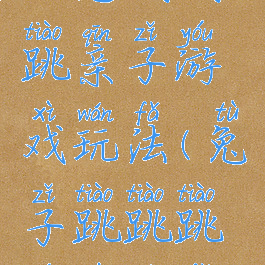 tiào qīn zǐ yóu
跳亲子游
xì wán fǎ tù
戏玩法(兔
zǐ tiào tiào tiào
子跳跳跳